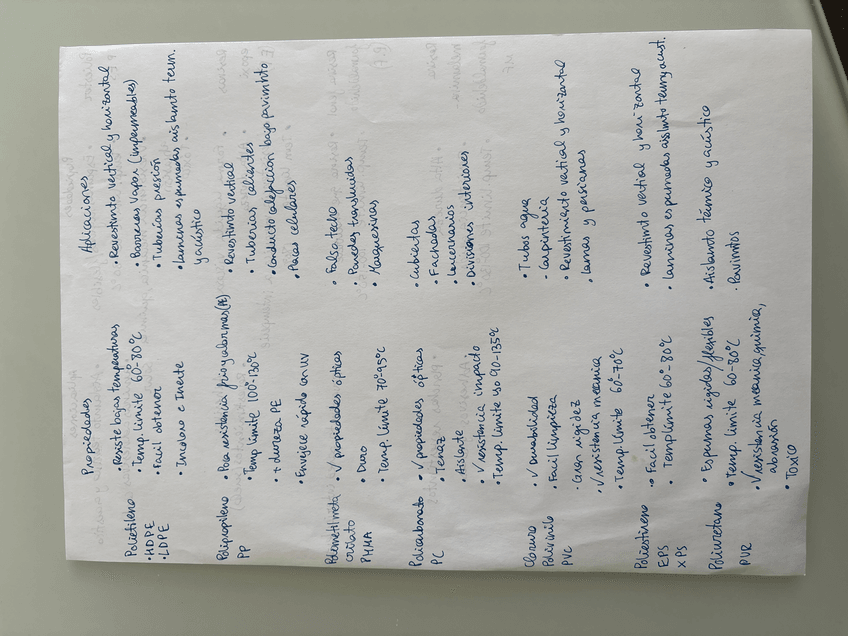 Propiedades
Aplicaciones
Polietileno
• HDPE
• LDPE
• Resiste bajas temperaturas
• Temp. Límite 60-80ºC
• Facil obtener
• Incoloro e Inerte
• Revestimto vertical y horizontal
• Barreras Vapor (impermeables)
• Tuberías presión
• Laminas espumadas aislamto term.
y acústico
Polipropileno
PP
• Poca resistencia frio y alarmas (PE)
• Temp Límite 100-130ºC
• + dureza PE
• Envejece rápido con UV
• Revestimto vertical
• Tuberías calientes
• Conducto calefacción bajo pavimto
• Placas celulares
Polimetilmeta
crilato
PMMA
• √ propiedades ópticas
• Duro
• Temp. Límite 70-95ºC
• Falso techo
• Paredes translucidas
• Marquesinas
Policarbonato
PC
• √ propiedades ópticas
• Tenaz
• Aislante
• √ resistencia impacto
• Temp. Límite uso 90-135ºC
• Cubiertas
• Fachadas
• Lucernarios
• Divisiones interiores
Cloruro
Polivinilo
PVC
• √ durabilidad
• Facil limpieza
• Gran rigidez
• √ resistencia mecanica
• Temp. Límite 60-70ºC
• Tubos agua
- Carpintería
• Revestimiento vertical y horizontal
• Lamas y persianas
Poliestireno
EPS
XPS
• Facil obtener
• Temp Límite 60-80ºC
• Revestimto vertial y horizontal
• Laminas espumadas aislmto term y acust.
Poliuretano
PUR
• Espumas rigidas/flexibles
• Temp. Límite 60-80ºC
• √ resistencia mecanica, quimica,
abrasión
• TOXICO
• Aislamto térmico y acústico
- Pavimtos